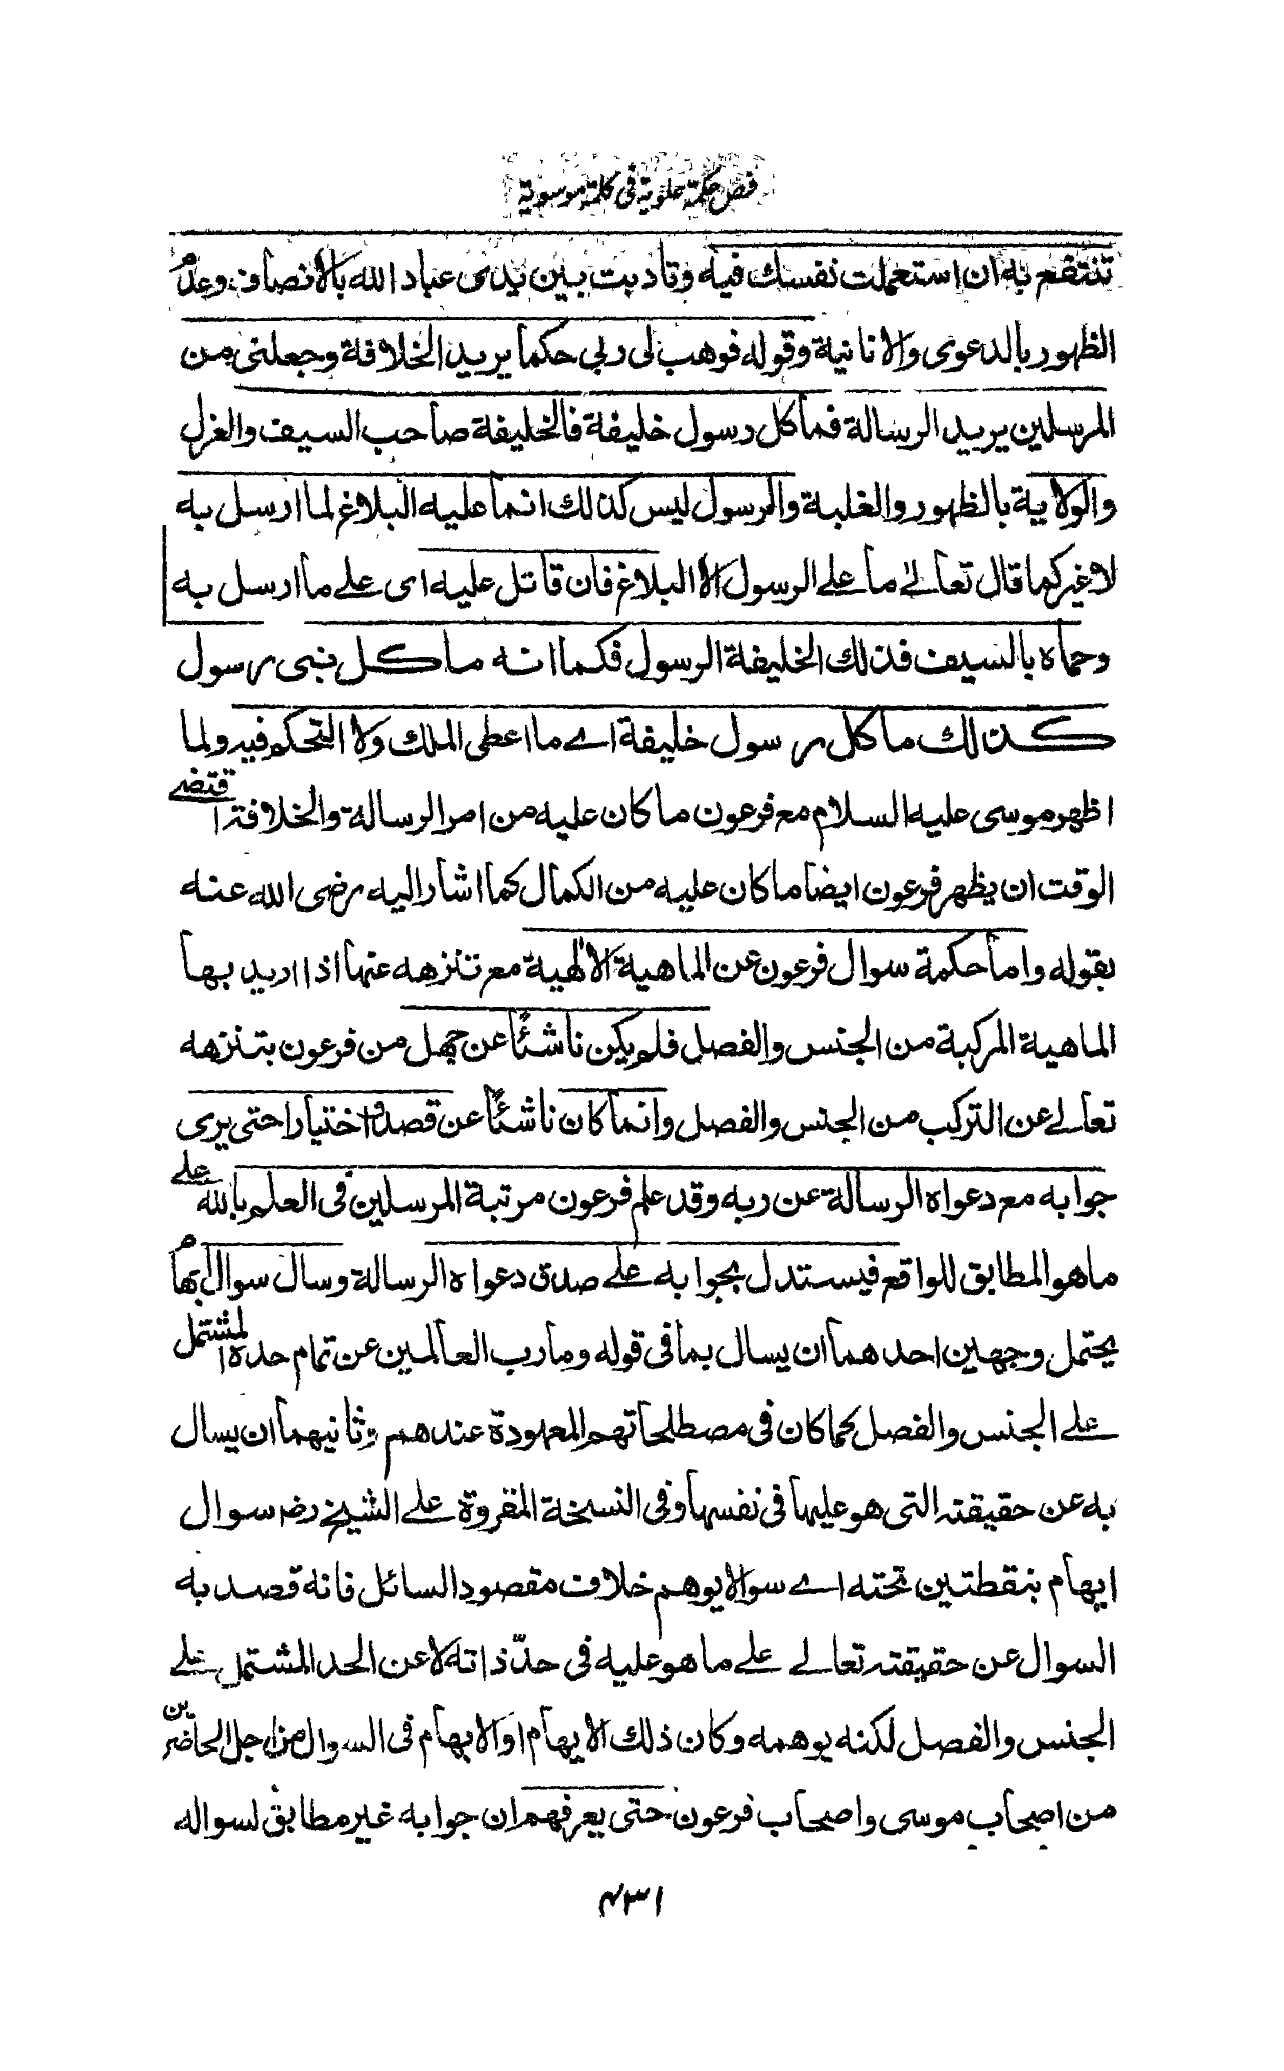 فص حكمة علوية فى كلمة موسوية
تنتفع به ان استعملت نفسك فيه وتادبت بين يدى عباد الله بالانصاف وعدم
الظهور بالدعوى والانانية وقوله فوهب لى ربى حكما يريد الخلافة وجعلنى من
المرسلين يريد الرسالة فما كل رسول خليفة فالخليفة صاحب السيف والعزل
والولاية بالظهور والغلبة والرسول ليس كذلك انما عليه البلاغ لما ارسل به
لا غير كما قال تعالى ما على الرسول الا البلاغ فان قاتل عليه اى على ما ارسل به
وحماه بالسيف فذلك الخليفة الرسول فكما انه ما كل نبى رسول
كذلك ما كل رسول خليفة اے ما اعطى الملك ولا التحكم فيه ولما
اظهر موسى عليه السلام مع فرعون ما كان عليه من امر الرسالة والخلافة اقتضے
الوقت ان يظهر فرعون ايضا ما كان عليه من الكمال كما اشار اليه رضى الله عنه
بقوله واما حكمة سوال فرعون عن الماهية الالهية مع تنزهه عنها اذا اريد بها
الماهية المركبة من الجنس والفصل فلم يكن ناشئا عن جهل من فرعون بتنزهه
تعالے عن التركب من الجنس والفصل وانما كان ناشئا عن قصد واختيار حتى يرى
جوابه مع دعواه الرسالة عن ربه وقد علم فرعون مرتبة المرسلين فى العلم بالله علے
ما هو المطابق للواقع فيستدل بجوابه علے صدق دعواه الرسالة وسال سوال ابهام
يحتمل وجهين احدهما ان يسال بما فى قوله وما رب العالمين عن تمام حده المشتمل
علے الجنس والفصل كما كان فى مصطلحاتهم المعهودة عندهم وثانيهما ان يسال
به عن حقيقته التى هو عليها فى نفسها وفى النسخة المقروة علے الشيخ رضه سوال
ايهام بنقطتين تحته اے سوالا يوهم خلاف مقصود السائل فانه قصد به
السوال عن حقيقته تعالے علے ما هو عليه فى حدّ ذاته لا عن الحد المشتمل علے
الجنس والفصل لكنه يوهمه وكان ذلك الايهام او الابهام فى السوال من اجل الحاضرين
من اصحاب موسى واصحاب فرعون حتى يعرفهم ان جوابه غير مطابق لسواله
۴۳۱